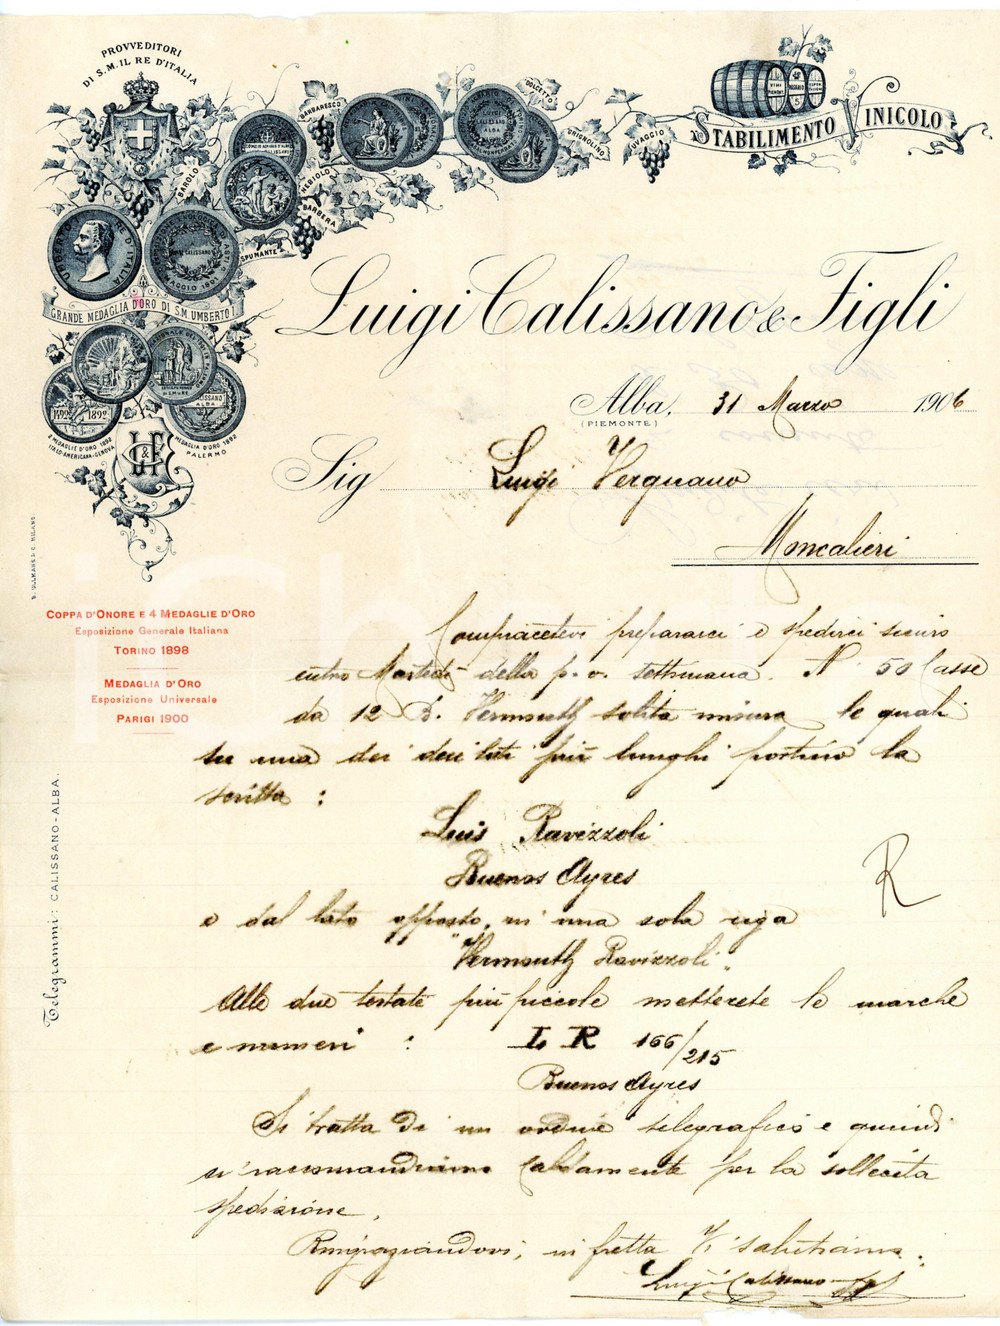 PROVVEDITORI
DI S.M. IL RE D'ITALIA
BARBARESCO
DOLCETTO
GRIGNOLINO
UVAGGIO
BAROLO
NEBIOLO
BARBERA
SPUMANTE
STABILIMENTO VINICOLO
GRANDE MEDAGLIA D'ORO DI S.M. UMBERTO I.
1492 1892
2 MEDAGLIE D'ORO 1892
ITALO-AMERICANA-GENOVA
MEDAGLIA D'ORO 1892
PALERMO
Luigi Calissano & Figli
Alba, 31 Marzo 1906
(PIEMONTE)
Sig Luigi Vergnano
Moncalieri
COPPA D'ONORE E 4 MEDAGLIE D'ORO
Esposizione Generale Italiana
TORINO 1898
MEDAGLIA D'ORO
Esposizione Universale
PARIGI 1900
Telegrammi: CALISSANO-ALBA.
Compiacetevi prepararci e spedirci sicuro
entro Martedì della p. v. settimana. N° 50 Casse
da 12 B. Vermouth solita misura le quali
su uno dei due lati più lunghi portino la
scritta :
Luis Ravizzoli
Buenos Ayres
R
e dal lato opposto, in una sola riga
"Vermouth Ravizzoli"
Alle due testate più piccole metterete le marche
e numeri : L R 166/215
Buenos Ayres
Si tratta di un ordine telegrafico e quindi
vi raccomandiamo caldamente per la sollecita
spedizione.
Ringraziandovi, in fretta Vi salutiamo.
Luigi Calissano & Figli